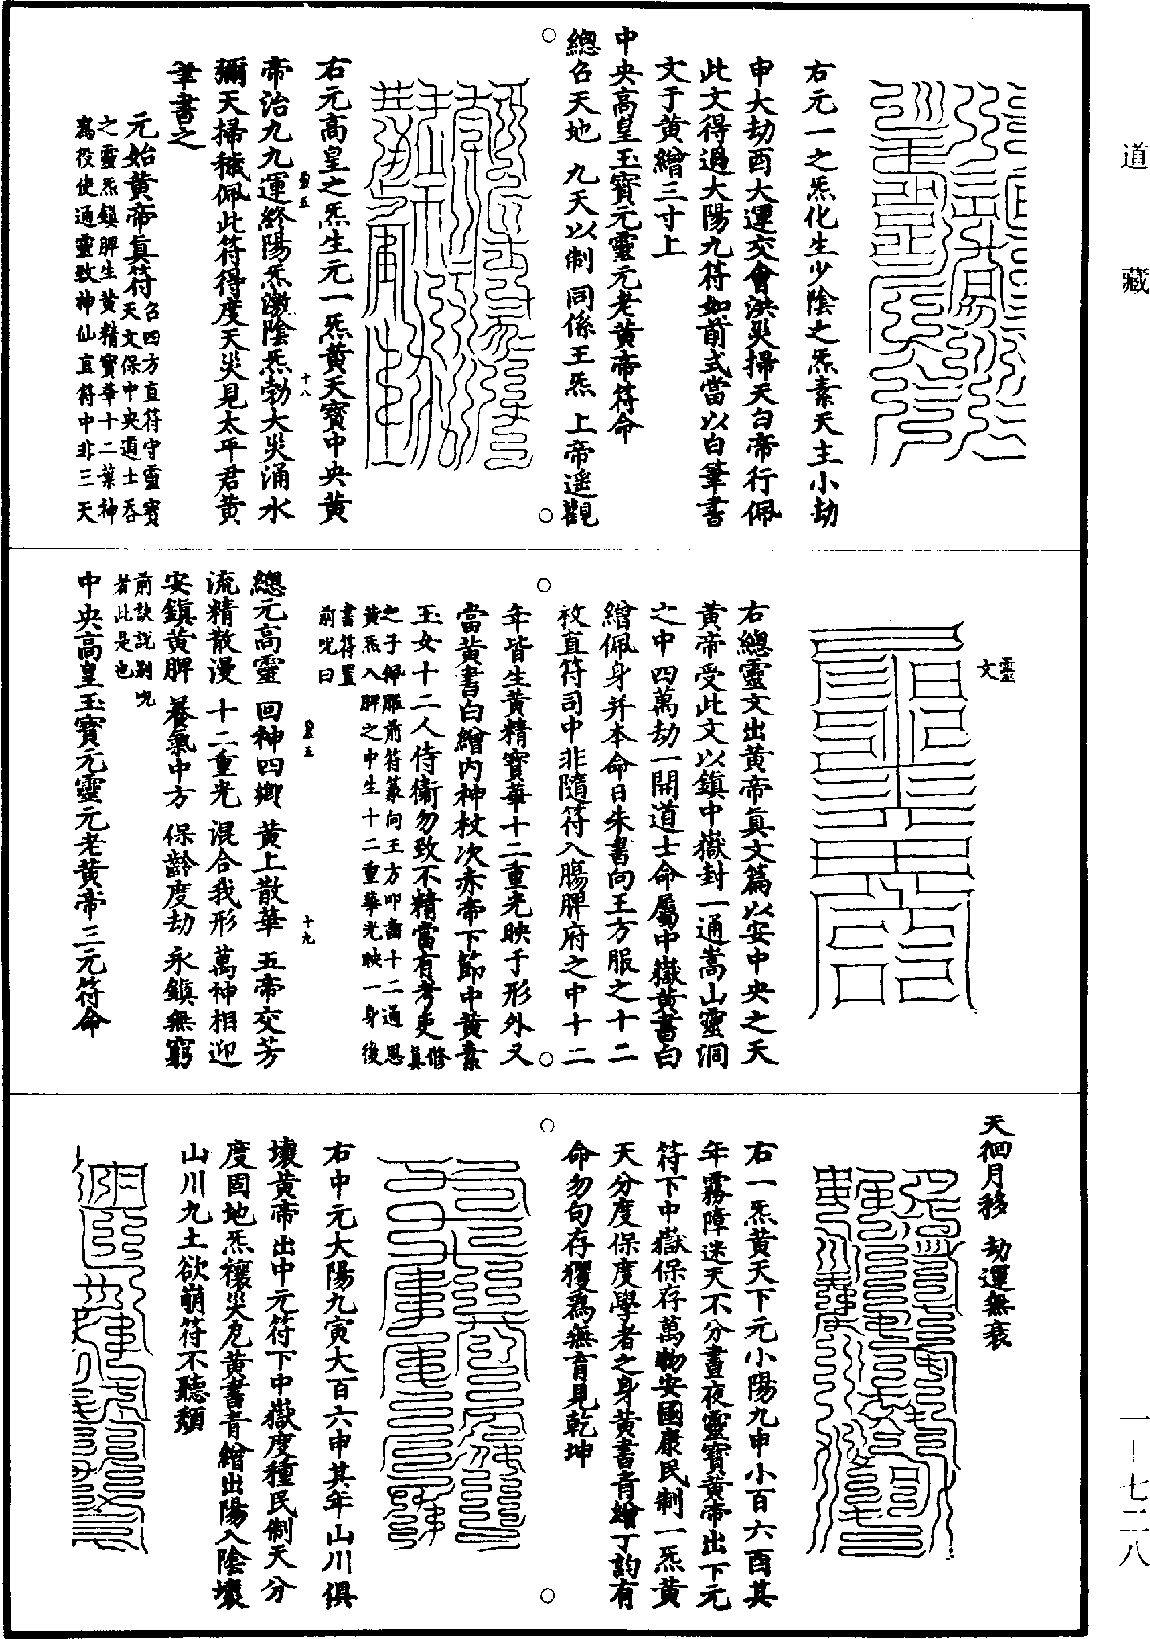 道藏
右元一之炁化生少陰之炁素天主小劫
申大劫酉大運交會洪災掃天白帝行佩
此文得過大陽九符如前式當以白筆書
文于黄繒三寸上
中央高皇玉寳元靈元老黄帝符命
總召天地 九天以制 同係王炁 上帝遥觀
右元高皇之炁生元一炁黄天寳中央黄
帝治九九運終陽炁激陰炁勃大災涌水
彌天掃穢佩此符得度天災見太平君黄
筆書之
元始黄帝眞符召四方直符守靈寳
天文保中央道士吞
之靈炁鎮脾生黄精寳華十二葉神
爲役使通靈致神仙直符中非三天
十八
靈文
右總靈文出黄帝眞文篇以安中央之天
黄帝受此文以鎮中嶽封一通嵩山靈洞
之中四萬劫一開道士命屬中嶽黄書白
繒佩身并本命日朱書向王方服之十二
枚直符司中非隨符入腸脾府之中十二
年皆生黄精寳華十二重光映于形外又
當黄書白繒内神杖次赤帝下節中黄素
玉女十二人侍衛勿致不精當有考吏修眞
之子佩服前符篆向王方叩齒十二通思
黄炁入脾之中生十二重華光映一身後
書符置
前呪曰
十九
總元高靈 回神四鄉 黄上散華 五帝交芳
流精散漫 十二重光 混合我形 萬神相迎
安鎮黄脾 養氣中方 保齡度劫 永鎮無窮
前訣説別呪
者此是也
中央高皇玉寳元靈元老黄帝三元符命
天徊月移 劫運無衰
右一炁黄天下元小陽九申小百六酉其
年霧障迷天不分晝夜靈寳黄帝出下元
符下中嶽保存萬物安國康民制一炁黄
天分度保度學者之身黄書青繒丁訽有
命勿句存玃爲無育見乾坤
右中元大陽九寅大百六申其年山川俱
壞黄帝出中元符下中嶽度種民制天分
度固地炁禳災危黄書青繒出陽入陰壞
山川九土欲崩符不聽頽
一—七二八